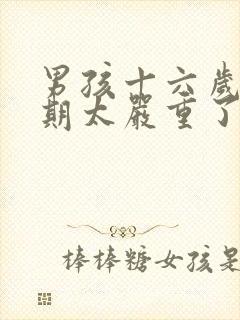 男孩十六歲
期太嚴重了
棒棒糖女孩是